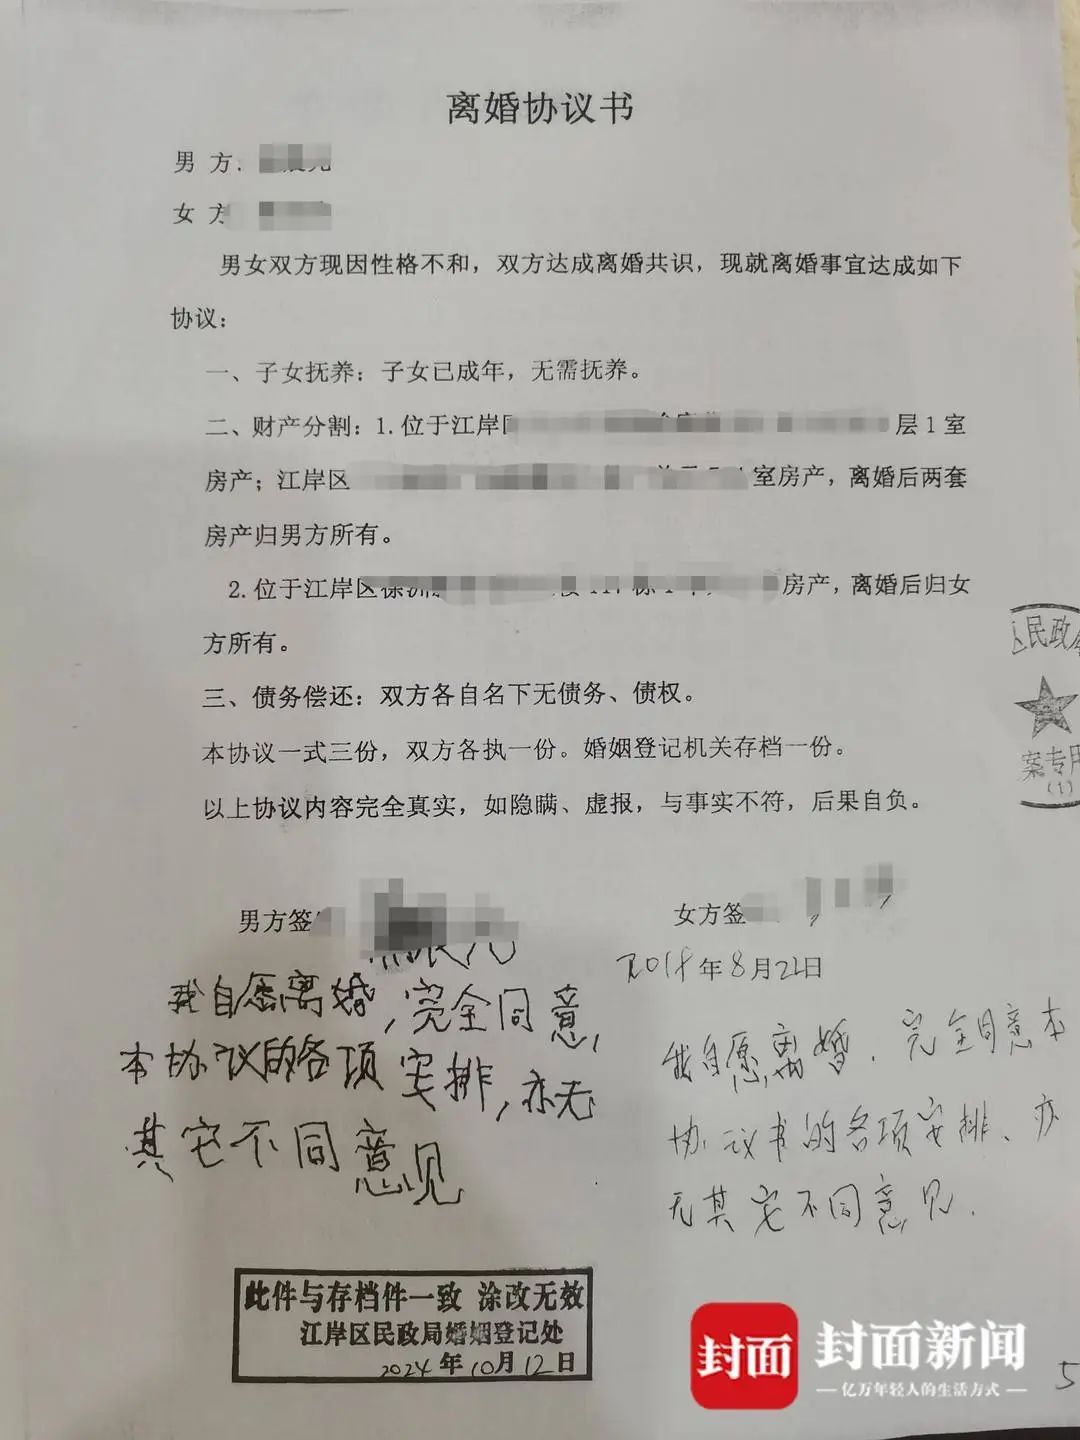 离婚协议书
男 方:
女 方
男女双方现因性格不和，双方达成离婚共识，现就离婚事宜达成如下
协议：
一、子女抚养：子女已成年，无需抚养。
二、财产分割：1.位于江岸 层1室
房产；江岸区 室房产，离婚后两套
房产归男方所有。
2.位于江岸区 房产，离婚后归女
方所有。
三、债务偿还：双方各自名下无债务、债权。
本协议一式三份，双方各执一份。婚姻登记机关存档一份。
以上协议内容完全真实，如隐瞒、虚报，与事实不符，后果自负。
男方签
女方签
年8月22日
我自愿离婚，完全同意，
本协议的各项安排，亦无
其它不同意见
我自愿离婚，完全同意本
协议书的各项安排、亦
无其它不同意见.
民政
案专用
(1)
此件与存档件一致 涂改无效
江岸区民政局婚姻登记处
2024年10月12日
封面 封面新闻
亿万年轻人的生活方式
5